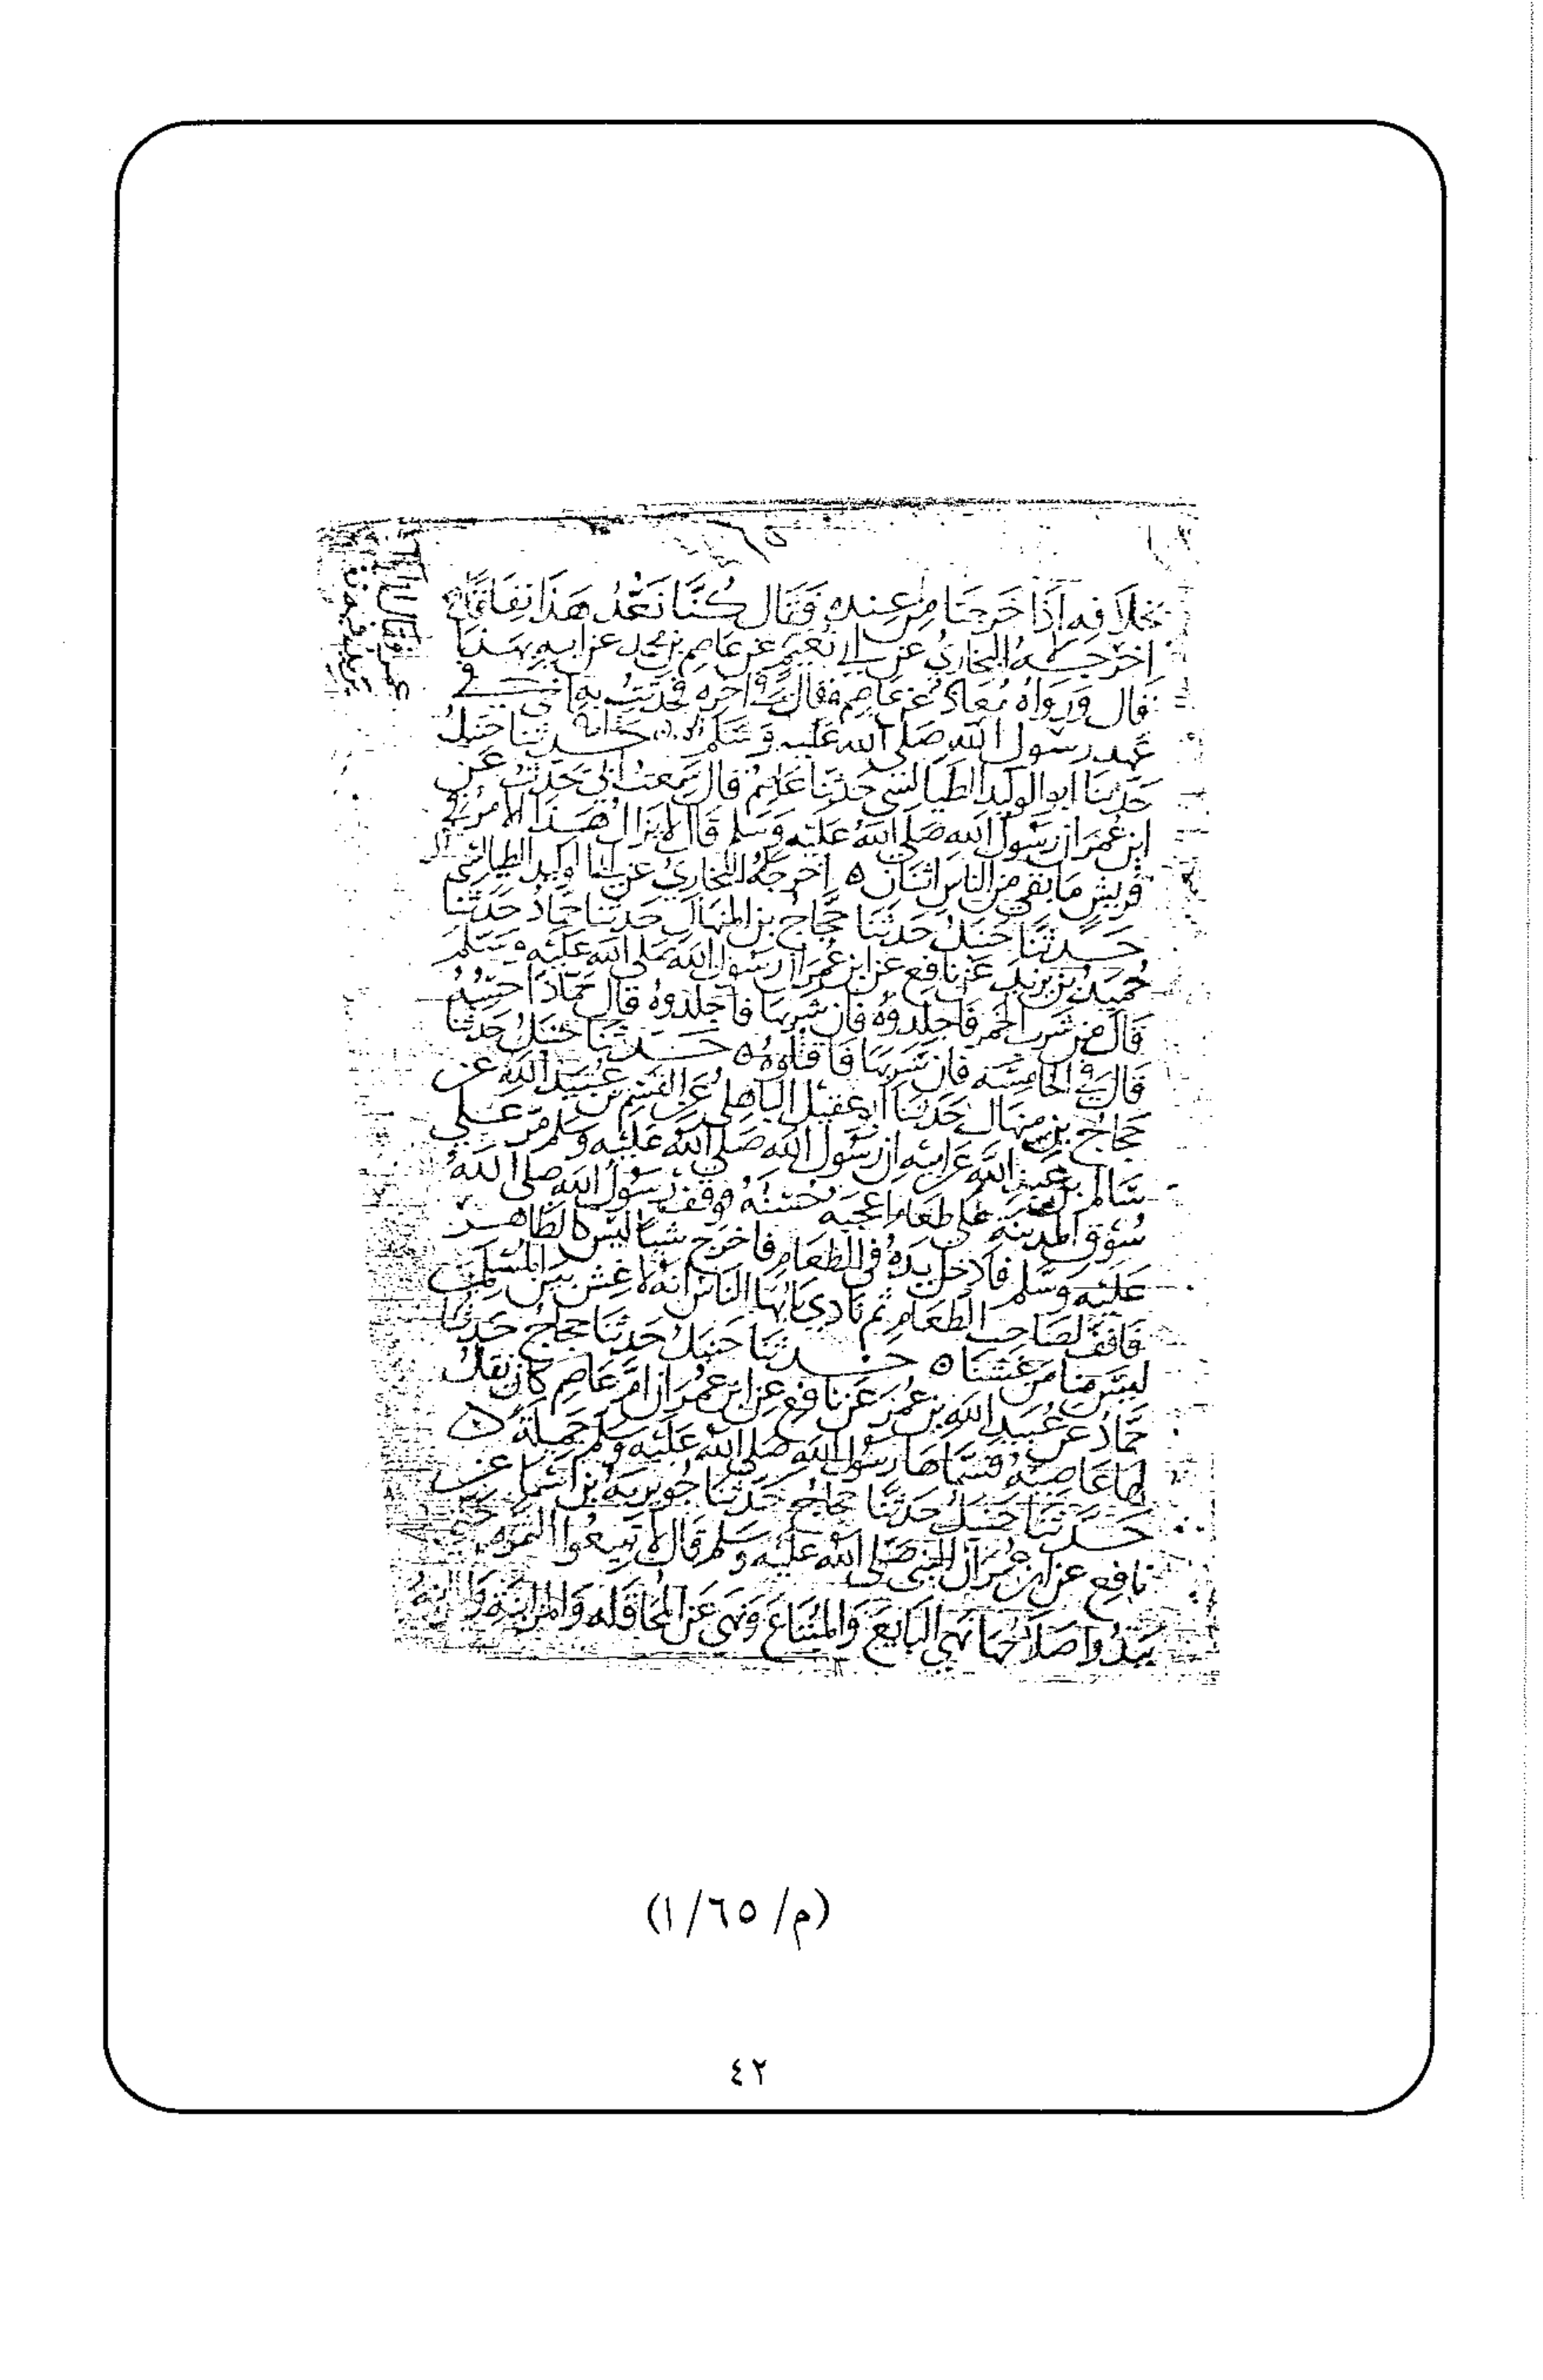 بخلافه اذا خرجنا من عنده فقال كنا نعد هذا نفاقا
اخرجه البخاري عن ابي نعيم عن عاصم بن محمد عن ابيه بهذا
قال ورواه معاذ عن عاصم فقال في اخره فحدثت به اخي في
عهد رسول الله صلى الله عليه وسلم حدثنا حنبل
حدثنا ابو الوليد الطيالسي حدثنا عاصم قال سمعت ابي يحدث عن
ابن عمر ان رسول الله صلى الله عليه وسلم قال لا يزال هذا الامر في
قريش ما بقي من الناس اثنان ه اخرجه البخاري عن الوليد الطيالسي
حدثنا حنبل حدثنا حجاج بن المنهال حدثنا حماد حدثنا
حميد بن يزيد عن نافع عن ابن عمر ان رسول الله صلى الله عليه وسلم
قال من شرب الخمر فاجلدوه فان شربها فاجلدوه قال حماد احسبه
قال في الخامسة فان شربها فاقتلوه ه حدثنا حنبل حدثنا
حجاج بن منهال حدثنا ابو عقيل الباهلي عن القسم بن عبيد الله عن
سالم بن عبد الله عن ابيه ان رسول الله صلى الله عليه وسلم مر على
سوق المدينة على طعام اعجبه حسنه فوقف رسول الله صلى الله
عليه وسلم فادخل يده في الطعام فاخرج شيا ليس كالظاهر
فافف لصاحب الطعام ثم نادى يا ايها الناس انه لا غش بين المسلمين
ليس منا من غشنا ه حدثنا حنبل حدثنا حجاج حدثنا
حماد عن عبيد الله بن عمر عن نافع عن ابن عمر ان ام عاصم كان يقال
لها عاصية فسماها رسول الله صلى الله عليه وسلم جميلة ه
حدثنا حنبل حدثنا حجاج حدثنا جويرية بن اسما عن
نافع عن ابن عمر ان النبي صلى الله عليه وسلم قال لا تبيعوا الثمرة حتى
يبدوا صلاحها نهى البايع والمبتاع ونهى عن المحاقلة والمزابنة
(م/ ٦٥/ ١)
٤٢